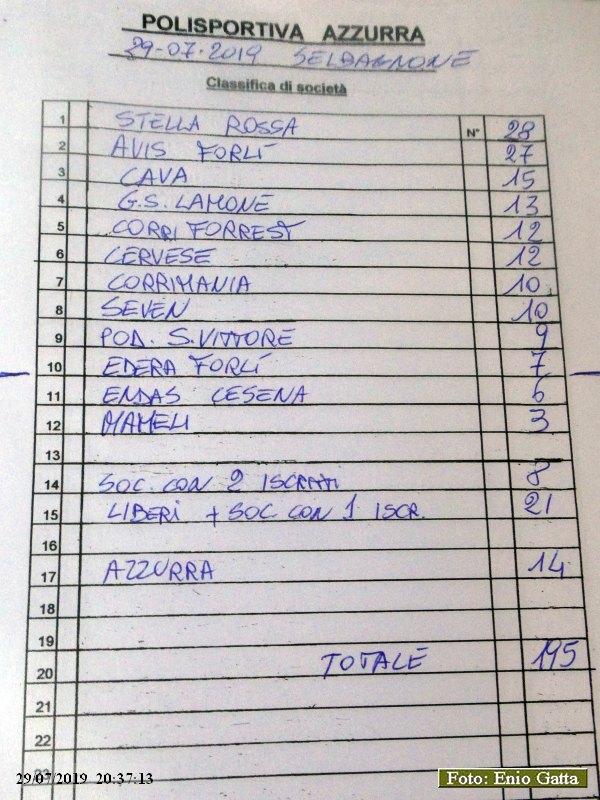 POLISPORTIVA AZZURRA
29-07-2019 SELBAGNONE
Classifica di società
1 STELLA ROSSA N° 28
2 AVIS FORLÍ 27
3 CAVA 15
4 G.S. LAMONE 13
5 CORRI FORREST 12
6 CERVESE 12
7 CORRIMANIA 10
8 SEVEN 10
9 POD. S. VITTORE 9
10 EDERA FORLÍ 7
11 ENDAS CESENA 6
12 MAMELI 3
13
14 SOC. CON 2 ISCRITTI 8
15 LIBERI + SOC. CON 1 ISCR. 21
16
17 AZZURRA 14
18
19
20 TOTALE 195
21
22
23
29/07/2019 20:37:13
Foto: Enio Gatta